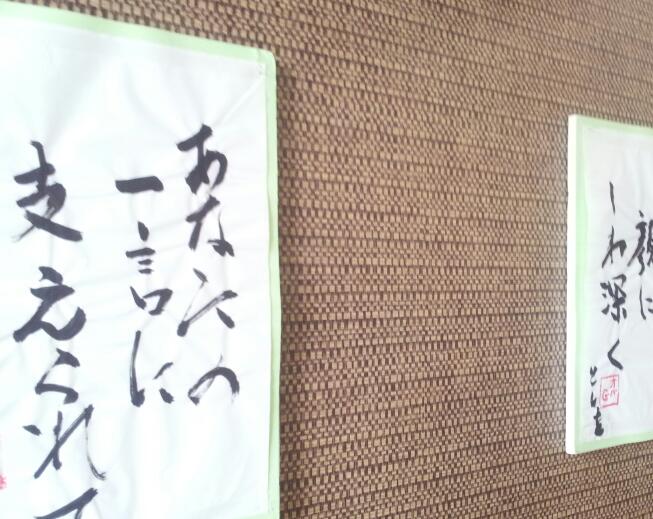 あなたの
一言に
支えられて
顔に
しわ深く